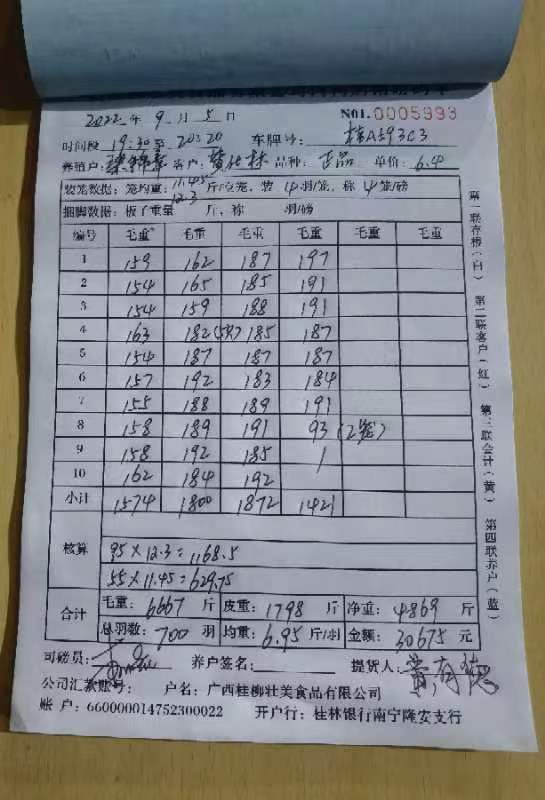 2022 年 9 月 5 日 N01.0005993
时间段 19:30至 20:20 车牌号: 桂A593C3
养殖户: 客户: 品种: 正品 单价: 6.4
装笼数据: 笼均重: 11.45 12.3 斤/空笼, 装 14 羽/笼, 称 4 笼/磅
捆脚数据: 板子重量 斤, 称 羽/磅
编号 毛重 毛重 毛重 毛重 毛重 毛重
1 159 162 187 197
2 154 165 185 191
3 154 159 188 191
4 163 182(5只) 185 187
5 154 187 187 187
6 157 192 183 184
7 155 188 189 191
8 158 189 191 93 (2笼)
9 158 192 185 /
10 162 184 192
小计 1574 1800 1872 1421
核算 95×12.3=1168.5
55×11.45=629.75
合计 毛重: 6667 斤 皮重: 1798 斤 净重: 4869 斤
总羽数: 700 羽 均重: 6.95 斤/羽 金额: 30675 元
司磅员: 养户签名: 提货人: 黄有德
公司汇款账号: 户名: 广西桂柳壮美食品有限公司
账 户: 660000014752300022 开户行: 桂林银行南宁隆安支行
第一联存根(白) 第二联客户(红) 第三联会计(黄) 第四联养户(蓝)